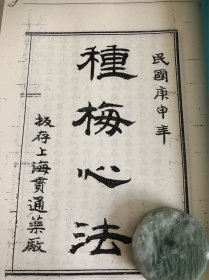 民國庚申年
種梅心法
板存上海貫通藥厰